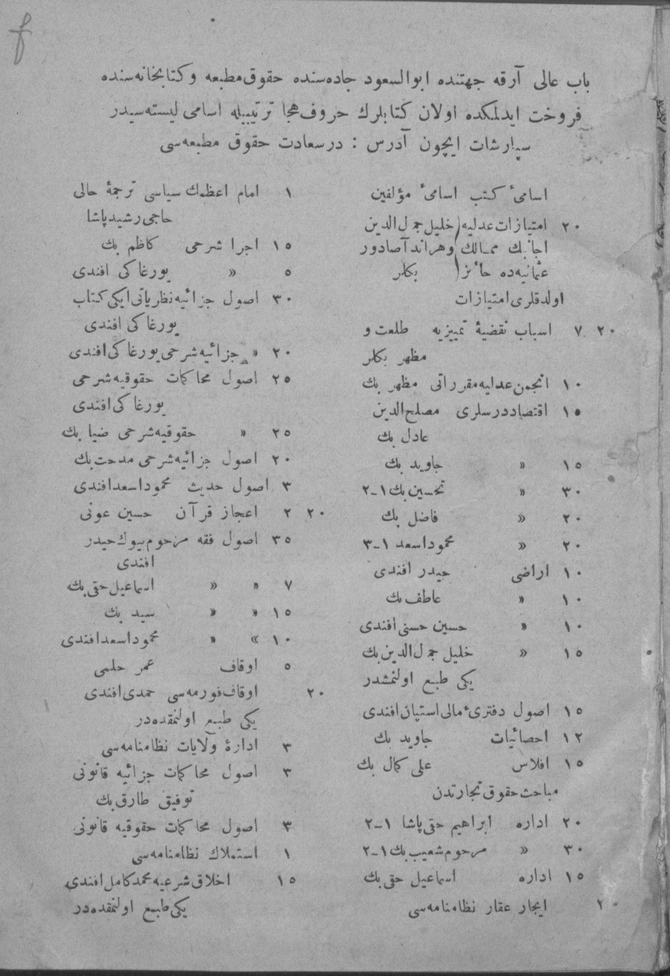 باب عالی آرقه جهتنده ابوالسعود جاده‌سنده حقوق مطبعه و کتابخانه‌سنده
فروخت ایدلمکده اولان کتابلرك حروف هجا ترتیبیله اسامی لیسته‌سیدر
سپارشات ایچون آدرس : درسعادت حقوق مطبعه‌سی
اسامیٔ کتب اسامیٔ مؤلفین
٢٠ امتیازات عدلیه ( خلیل جمال‌الدین
اجانبك ممالك ( وهراند آصادور
عثمانیه‌ده حائز ( بکلر
اولدقلری امتیازات
٢٠ ٧ اسباب نقضیهٔ تمییزیه طلعت و
مظهر بکلر
١٠ انجمن عدلیه مقرراتی مظهر بك
١٥ اقتصاد درسلری مصلح‌الدین
عادل بك
١٥ » جاوید بك
٣٠ » تحسین بك ١-٢
٢٠ » فاضل بك
٢٠ » محمود اسعد ١-٣
١٠ اراضی حیدر افندی
١٠ » عاطف بك
١٠ » حسین حسنی افندی
١٥ » خلیل جمال‌الدین بك
یکی طبع اولنمشدر
١٥ اصول دفتریٔ مالی استپان افندی
١٢ احصائیات جاوید بك
١٥ افلاس علی کمال بك
مباحث حقوق تجارتدن
٢٠ اداره ابراهیم حقی پاشا ١-٢
٣٠ » مرحوم شعیب بك ١-٢
١٥ اداره اسماعیل حقی بك
٢٠ ایجار عقار نظامنامه‌سی
١ امام اعظمك سیاسی ترجمهٔ حالی
حاجی رشید پاشا
١٥ اجرا شرحی کاظم بك
٥ » یورغاکی افندی
٣٠ اصول جزائیه نظریاتی ایکی کتاب
یورغاکی افندی
٢٠ » جزائیه شرحی یورغاکی افندی
٢٥ اصول محاکمات حقوقیه شرحی
یورغاکی افندی
٢٥ » حقوقیه شرحی ضیا بك
٢٠ اصول جزائیه شرحی مدحت بك
٣ اصول حدیث محمود اسعد افندی
٢٠ ٢ اعجاز قرآن حسین عونی
٣٥ اصول فقه مرحوم بیوك حیدر
افندی
٧ » » اسماعیل حقی بك
١٥ » » سید بك
١٠ » » محمود اسعد افندی
٥ اوقاف عمر حلمی
٢٠ اوقاف فورمه‌سی حمدی افندی
یکی طبع اولنمقده‌در
٣ ادارهٔ ولایات نظامنامه‌سی
٣ اصول محاکمات جزائیه قانونی
توفیق طارق بك
٣ اصول محاکمات حقوقیه قانونی
١ استملاك نظامنامه‌سی
١٥ اخلاق شرعیه محمد کامل افندی
یکی طبع اولنمقده‌در